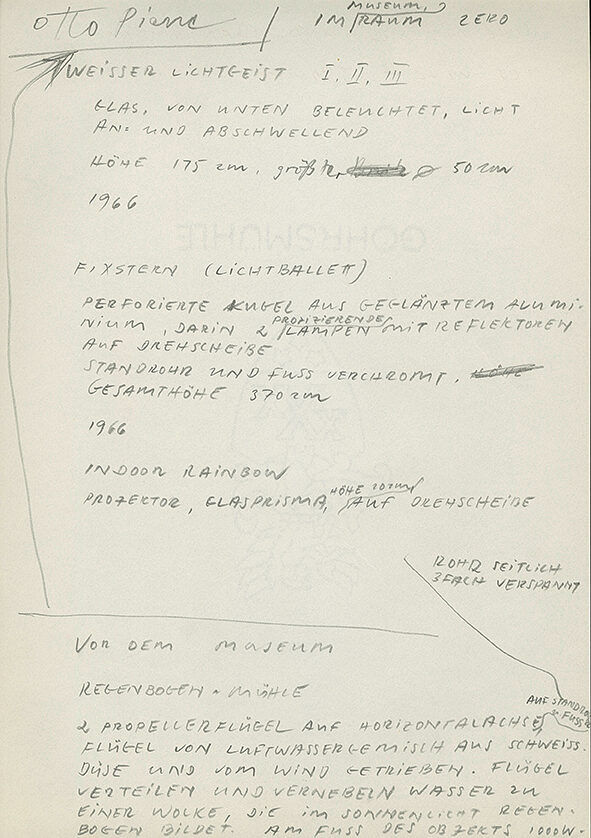 Otto Piene / IM RAUM MUSEUM, ZERO
WEISSER LICHTGEIST I, II, III
GLAS, VON UNTEN BELEUCHTET, LICHT
AN= UND ABSCHWELLEND
HÖHE 175 cm, größter ø 50 cm
1966
GOHRSMÜHLE
FIXSTERN (LICHTBALLETT)
PERFORIERTE KUGEL AUS GEGLÄNZTEM ALUMI-
NIUM, DARIN 2 PROJIZIERENDE LAMPEN MIT REFLEKTOREN
AUF DREHSCHEIBE
STANDROHR UND FUSS VERCHROMT,
GESAMTHÖHE 370 cm
1966
INDOOR RAINBOW
PROJEKTOR, GLASPRISMA, HÖHE 20 cm, AUF DREHSCHEIBE
ROHR SEITLICH
3FACH VERSPANNT
VOR DEM MUSEUM
REGENBOGEN-MÜHLE
AUF STANDRO
FUSS
2 PROPELLERFLÜGEL AUF HORIZONTALACHSE,
FLÜGEL VON LUFTWASSERGEMISCH AUS SCHWEISS-
DÜSE UND VOM WIND GETRIEBEN. FLÜGEL
VERTEILEN UND VERNEBELN WASSER ZU
EINER WOLKE, DIE IM SONNENLICHT REGEN-
BOGEN BILDET. AM FUSS DES OBJEKTS 1000W-